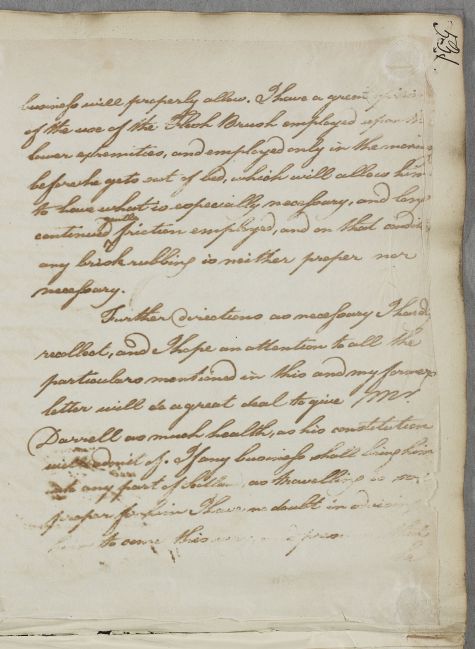 business will properly allow. I have a great opinion
of the use of the Flesh Brush employed upon the
lower extremities, and employed only in the morning
before he gets out of bed, which will allow him
to have what is especially necessary, and long
continued gentle friction employed, and on that
any brisk rubbing is neither proper nor
necessary.
Further directions as necessary I hardly
recollect, and I hope an attention to all the
particulars mentioned in this and my former
letter will do a great deal to give Mr.
Darrell as much health, as his constitution
will admit of. If any business shall bring him
into any part of as travelling is
proper for him I have no doubt in
to come this